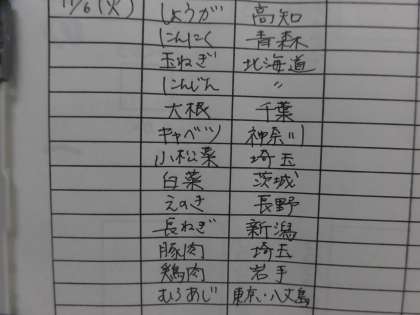 11/6(火) しょうが 高知
にんにく 青森
玉ねぎ 北海道
にんじん 〃
大根 千葉
キャベツ 神奈川
小松菜 埼玉
白菜 茨城
えのき 長野
長ねぎ 新潟
豚肉 埼玉
鶏肉 岩手
むろあじ 東京・八丈島